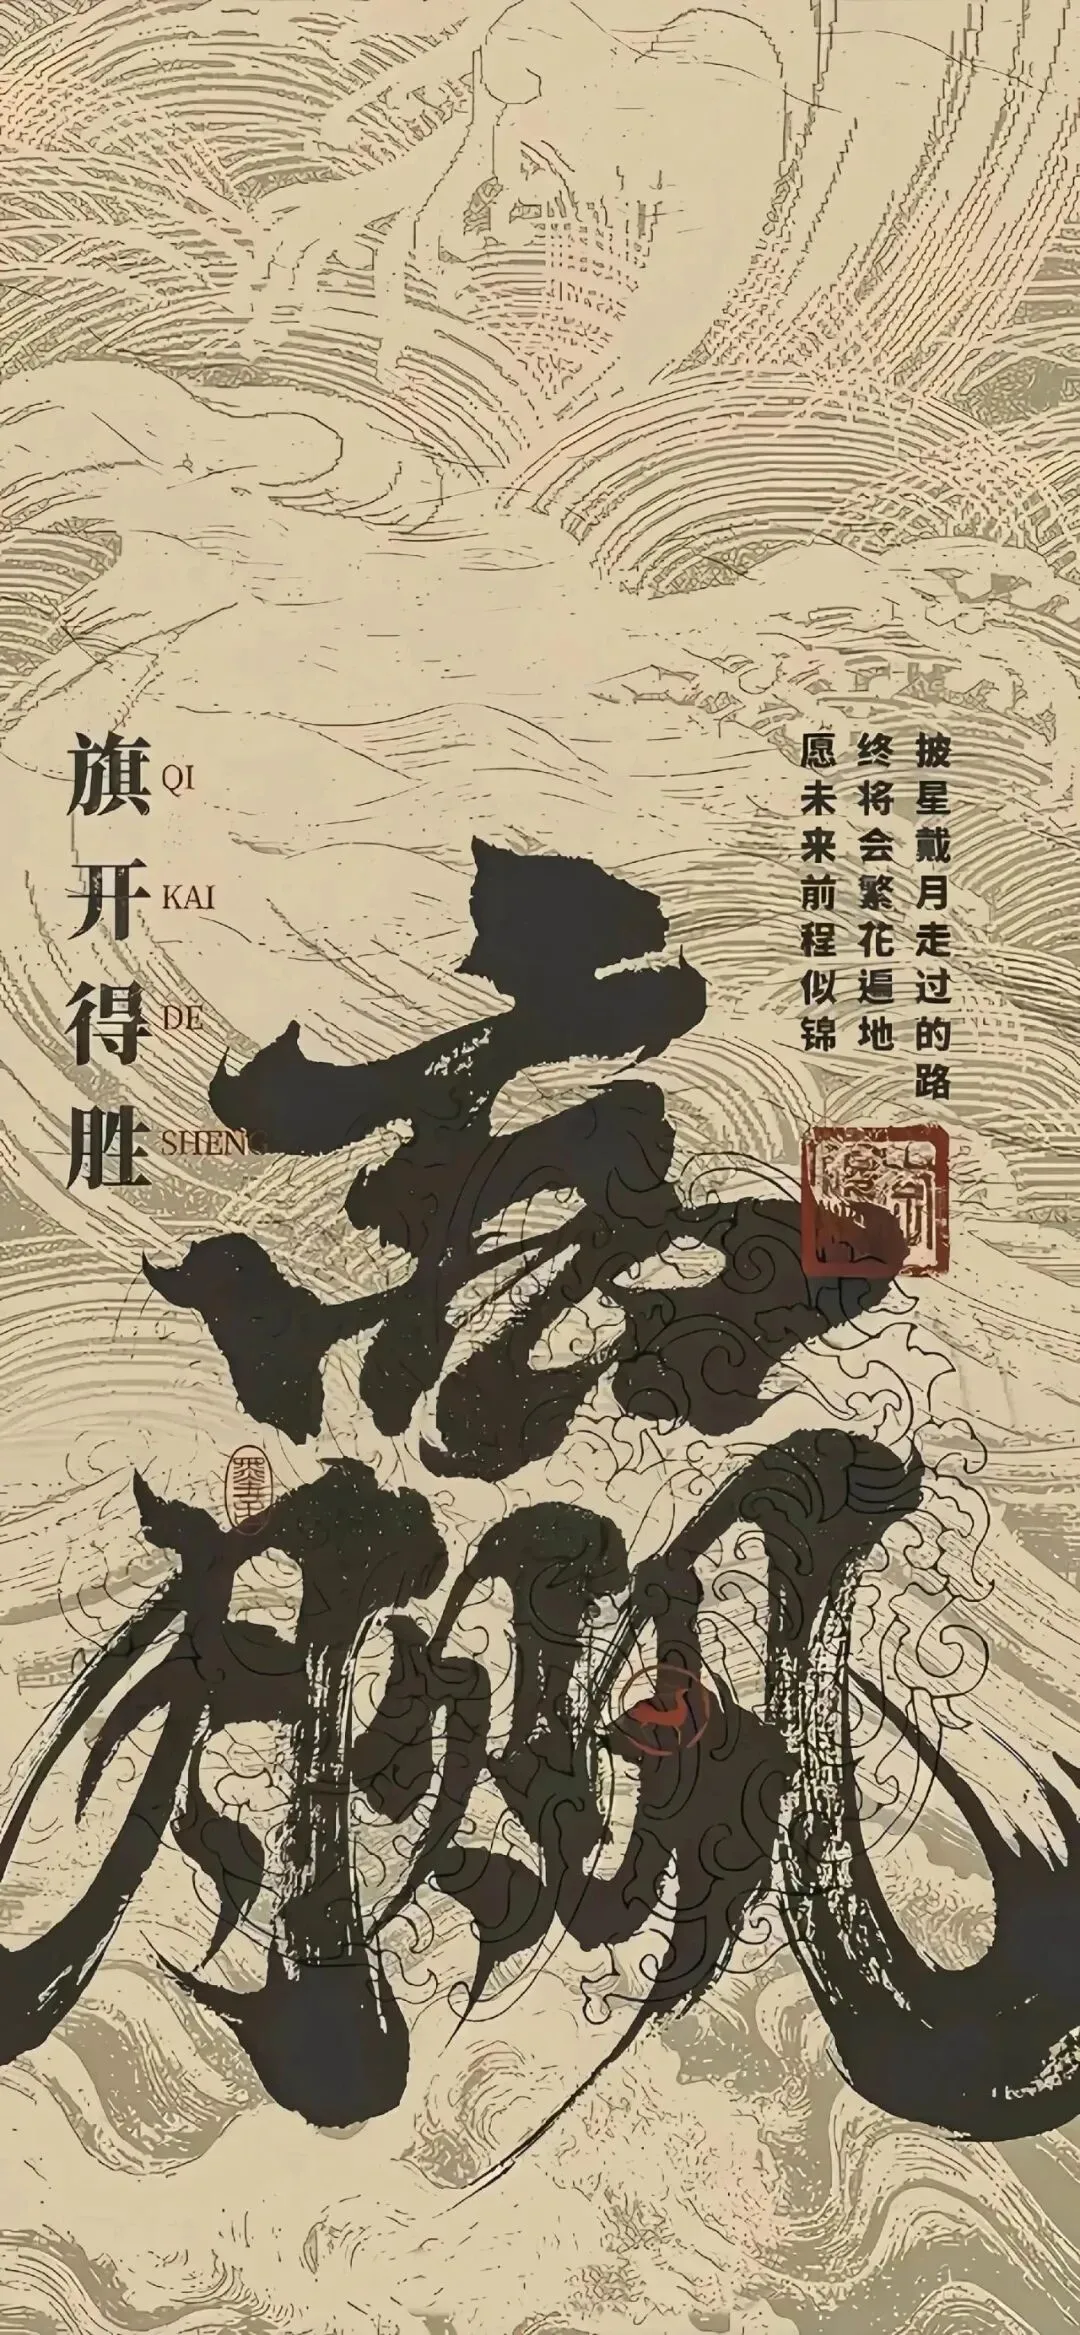 披星戴月走过的路
终将会繁花遍地
愿未来前程似锦
旗开得胜
QI
KAI
DE
SHENG
赢